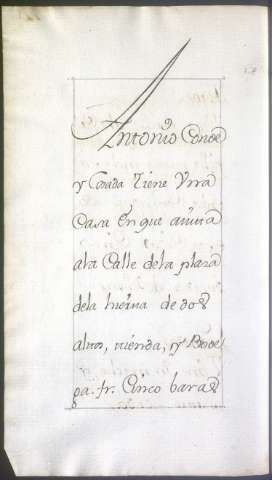 Antonio Conde
y Casada Tiene Vna
Casa En que aviuia
ala Calle dela plaza
dela hierua de dos
altos, tienda, y Bode
ga. fr. Cinco baras